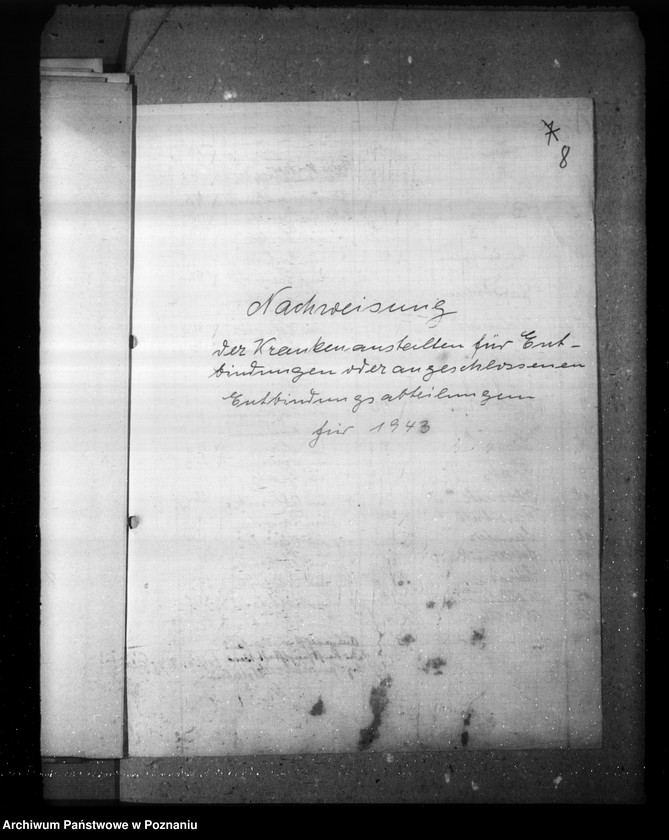 7
8
Nachweisung
der Krankenanstalten für Ent-
bindungen oder angeschlossenen
Entbindungsabteilungen
für 1943
Archiwum Państwowe w Poznaniu